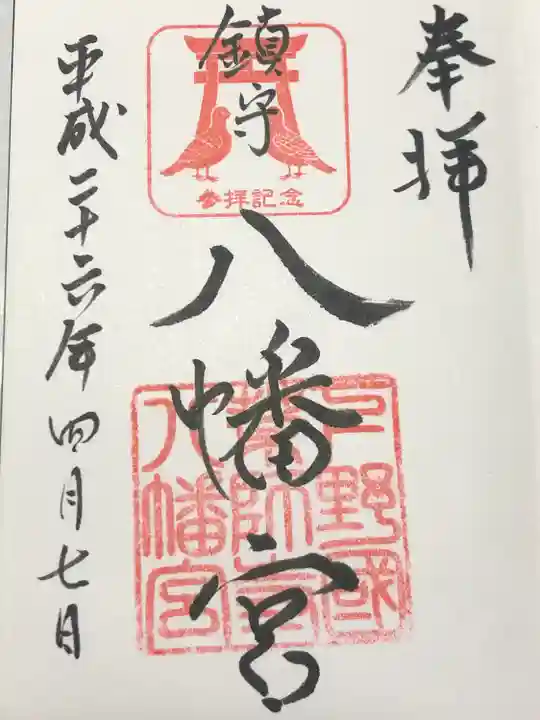 奉拝
鎮守
参拝記念
八幡宮
下野國
薬師寺
八幡宮
平成二十六年四月七日